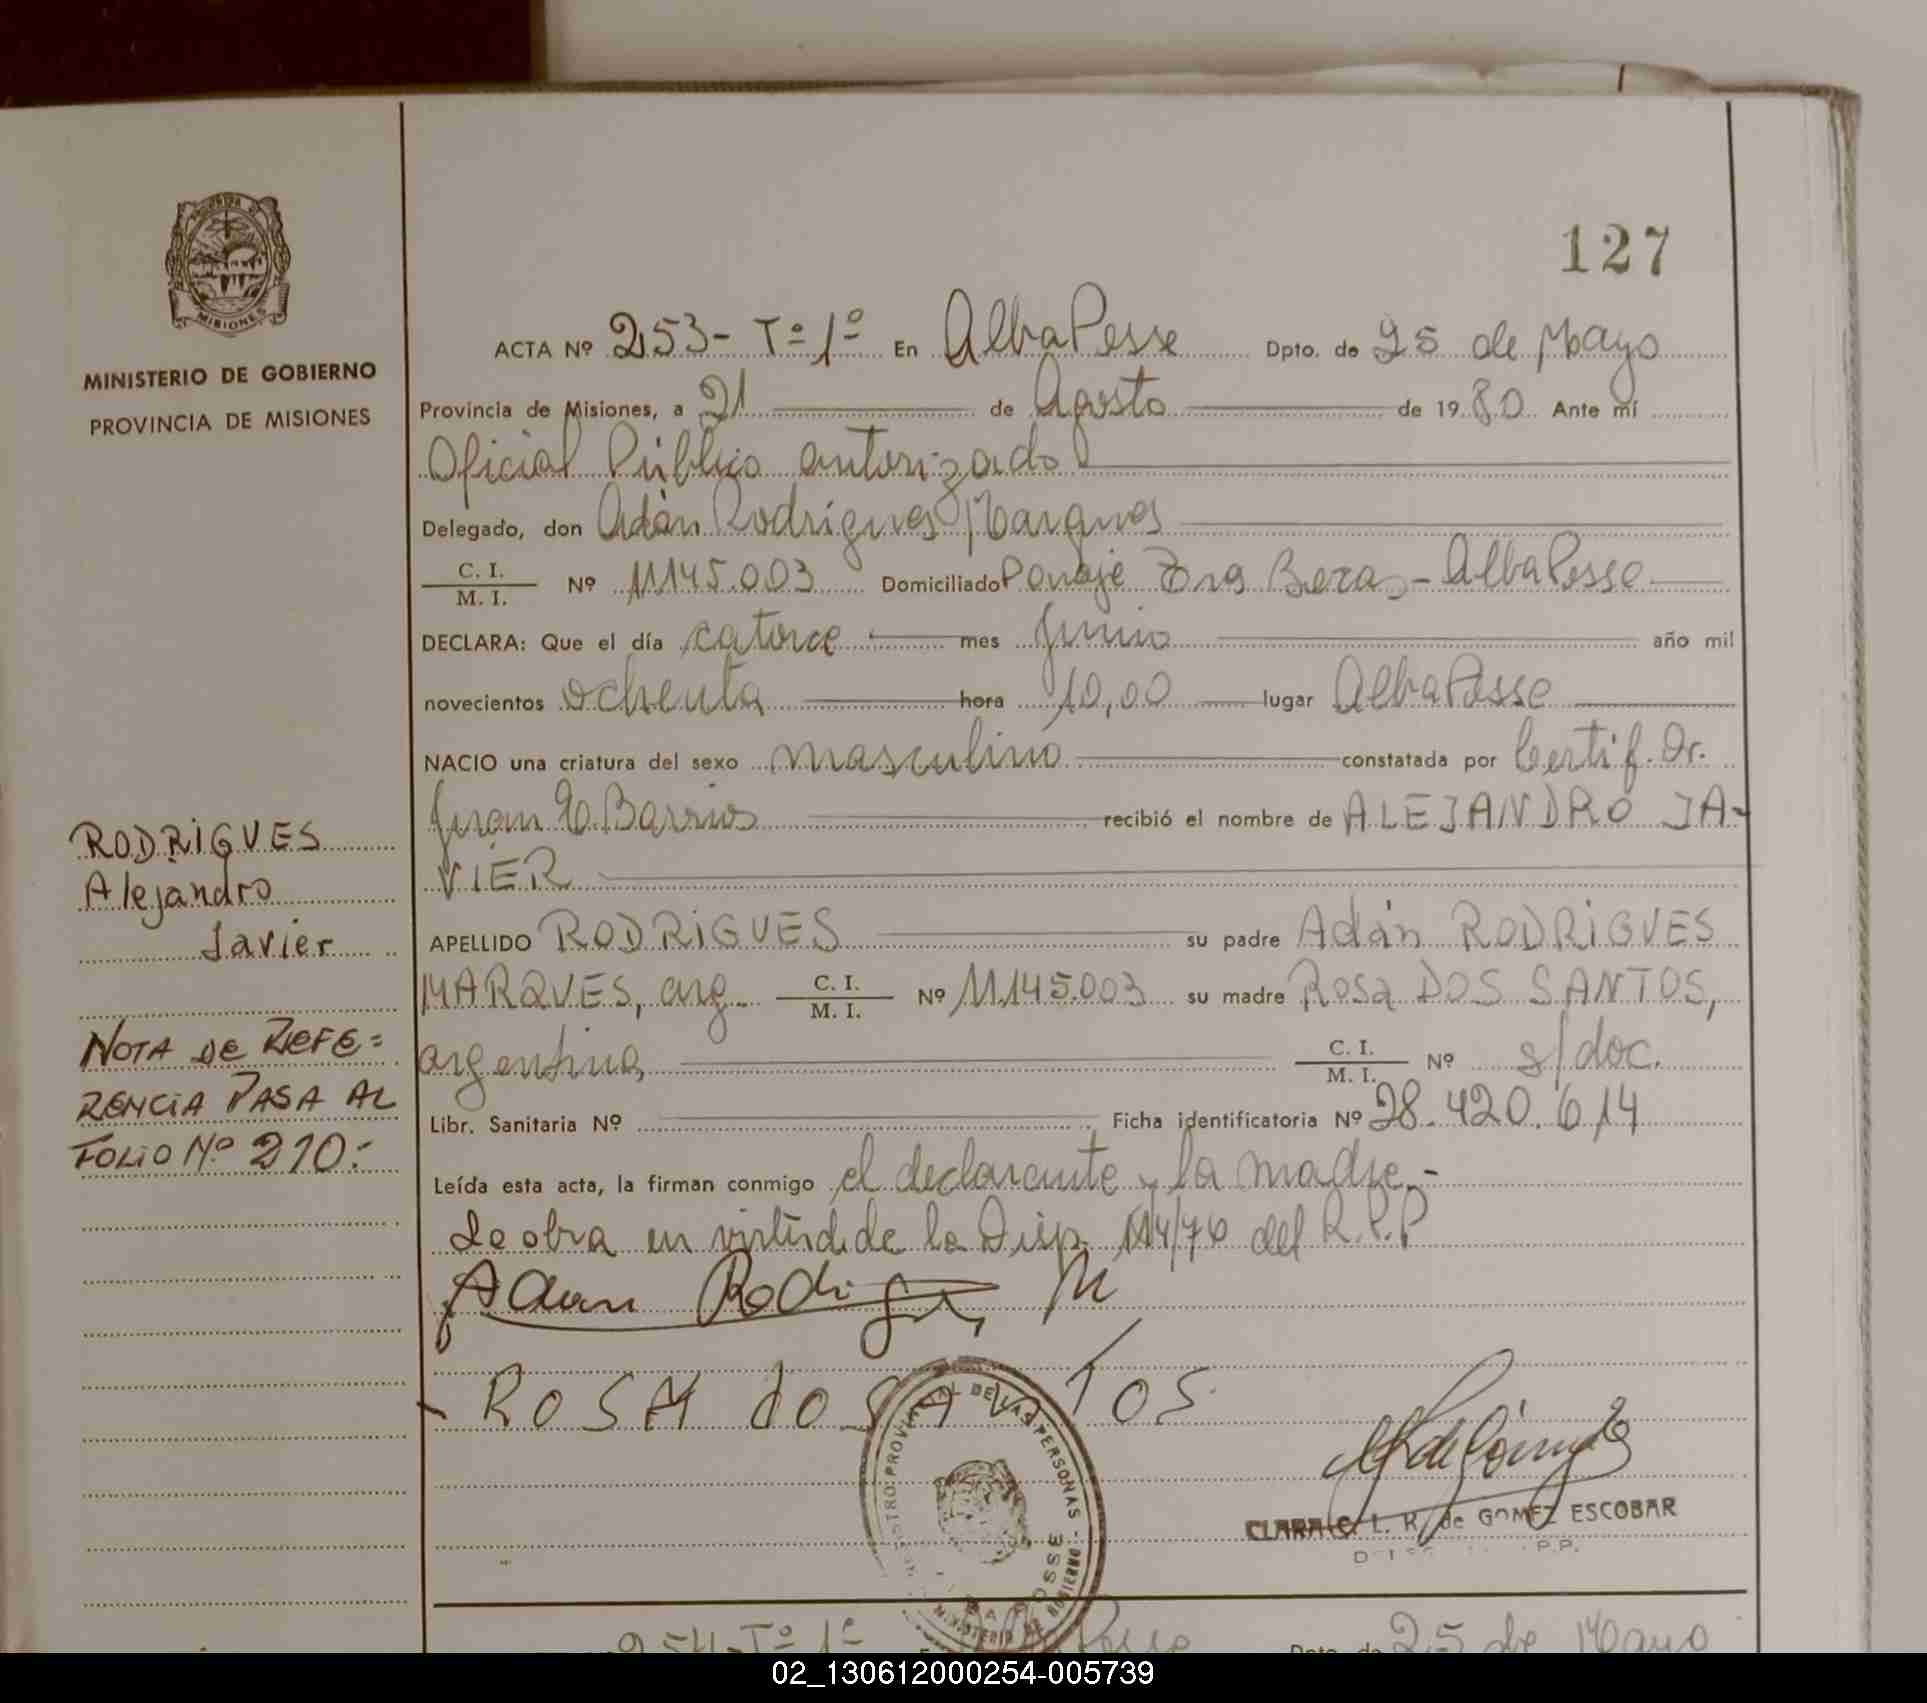 127
PROVINCIA DE
MISIONES
MINISTERIO DE GOBIERNO
PROVINCIA DE MISIONES
ACTA Nº 253- Tº 1º En Alba Posse Dpto. de 25 de Mayo
Provincia de Misiones, a 21 de Agosto de 1980 Ante mí
Oficial Público autorizado
Delegado, don Adán Rodrigues Marques
C. I.
M. I. Nº 11.145.003 Domiciliado Paraje Alba Posse
DECLARA: Que el día catorce mes Junio año mil
novecientos ochenta hora 10,00 lugar Alba Posse
NACIO una criatura del sexo masculino constatada por Certif. Dr.
Juan E. Barrios recibió el nombre de ALEJANDRO JA-
VIER
APELLIDO RODRIGUES su padre Adán RODRIGUES
MARQUES, arg. C. I.
M. I. Nº 11.145.003 su madre Rosa DOS SANTOS,
argentina C. I.
M. I. Nº s/doc.
Libr. Sanitaria Nº Ficha identificatoria Nº 28.420.614
Leída esta acta, la firman conmigo el declarante y la madre.-
Se obra en virtud de la Disp. 114/76 del R.P.P
Adan Rodrigues M
ROSA dOS SANTOS
RODRIGUES
Alejandro
Javier
NOTA DE REFE=
RENCIA PASA AL
FOLIO Nº 210.-
PROVINCIAL DE LAS PERSONAS - MINISTERIO DE GOBIERNO
POSSE
CLARA C. L. R. de GOMEZ ESCOBAR
254-Tº 1º Posse Dpto. de 25 de Mayo
02_130612000254-005739